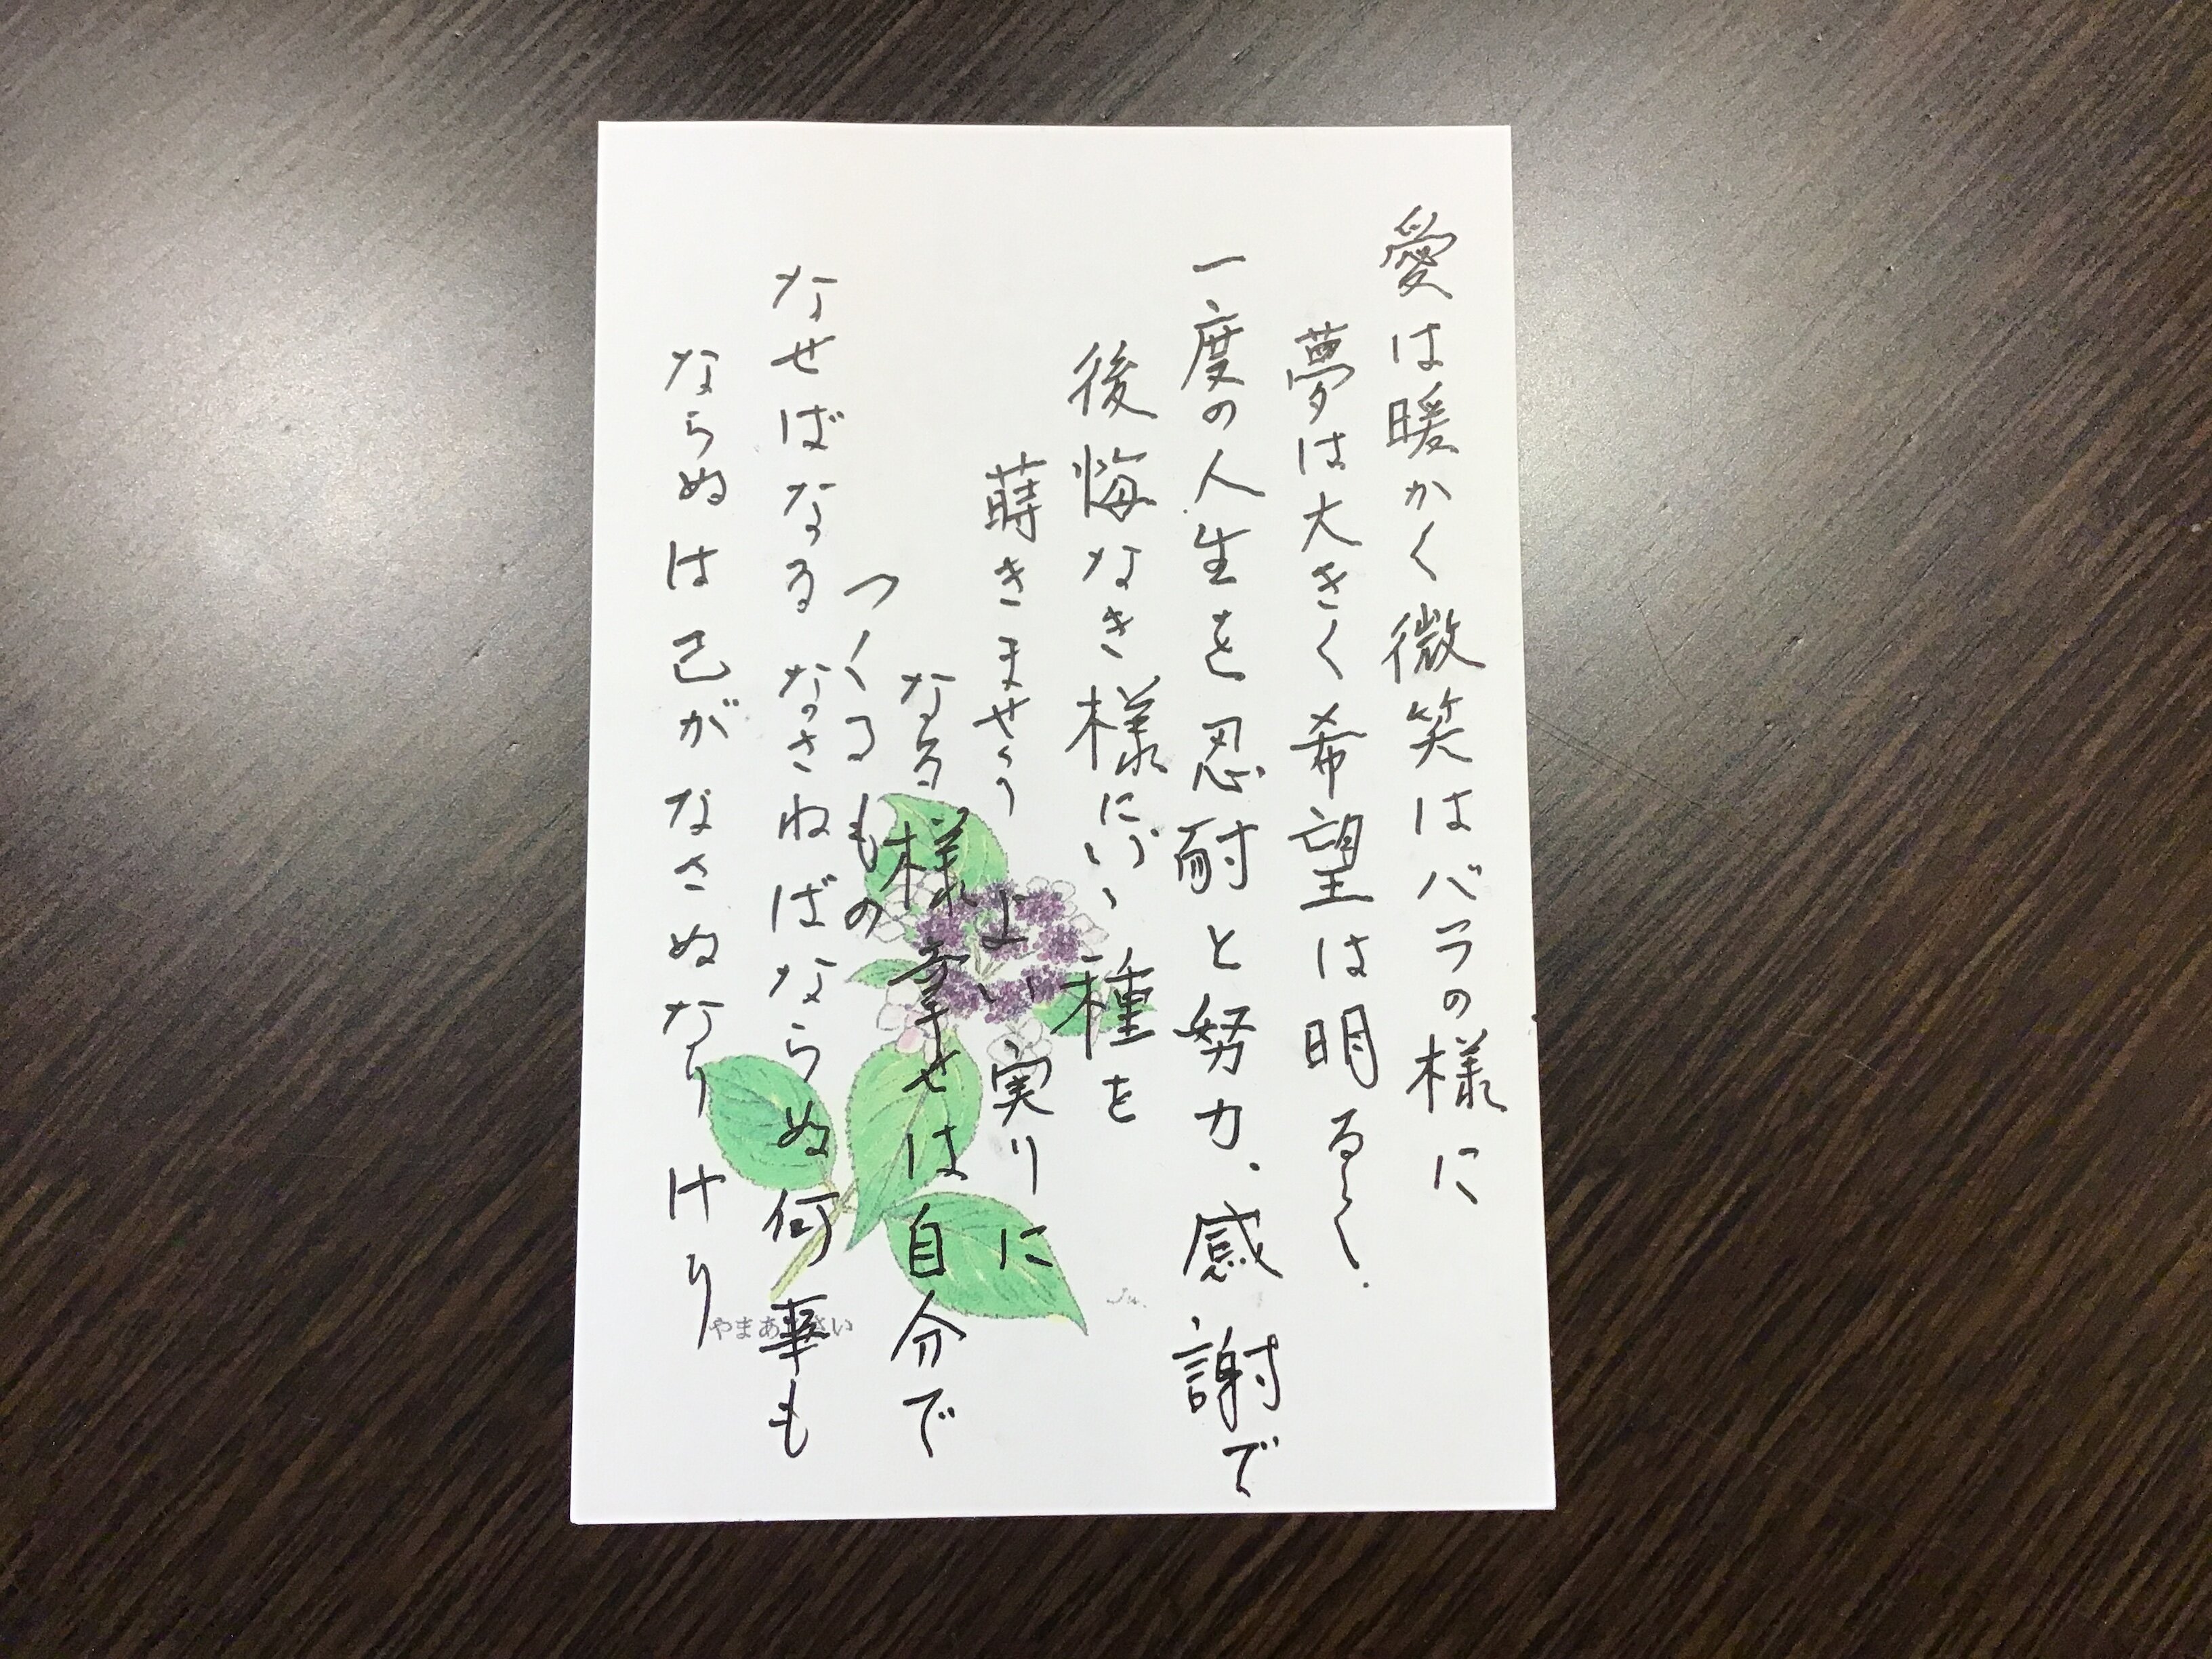 愛は暖かく微笑はバラの様に
夢は大きく希望は明るく、
一度の人生を忍耐と努力、感謝で
後悔なき様にいい種を
蒔きませう よい実りに
なる様 幸せは自分で
つくるもの
なせばなる なさねばならぬ何事も
ならぬは己がなさぬなりけり
やまあじさい